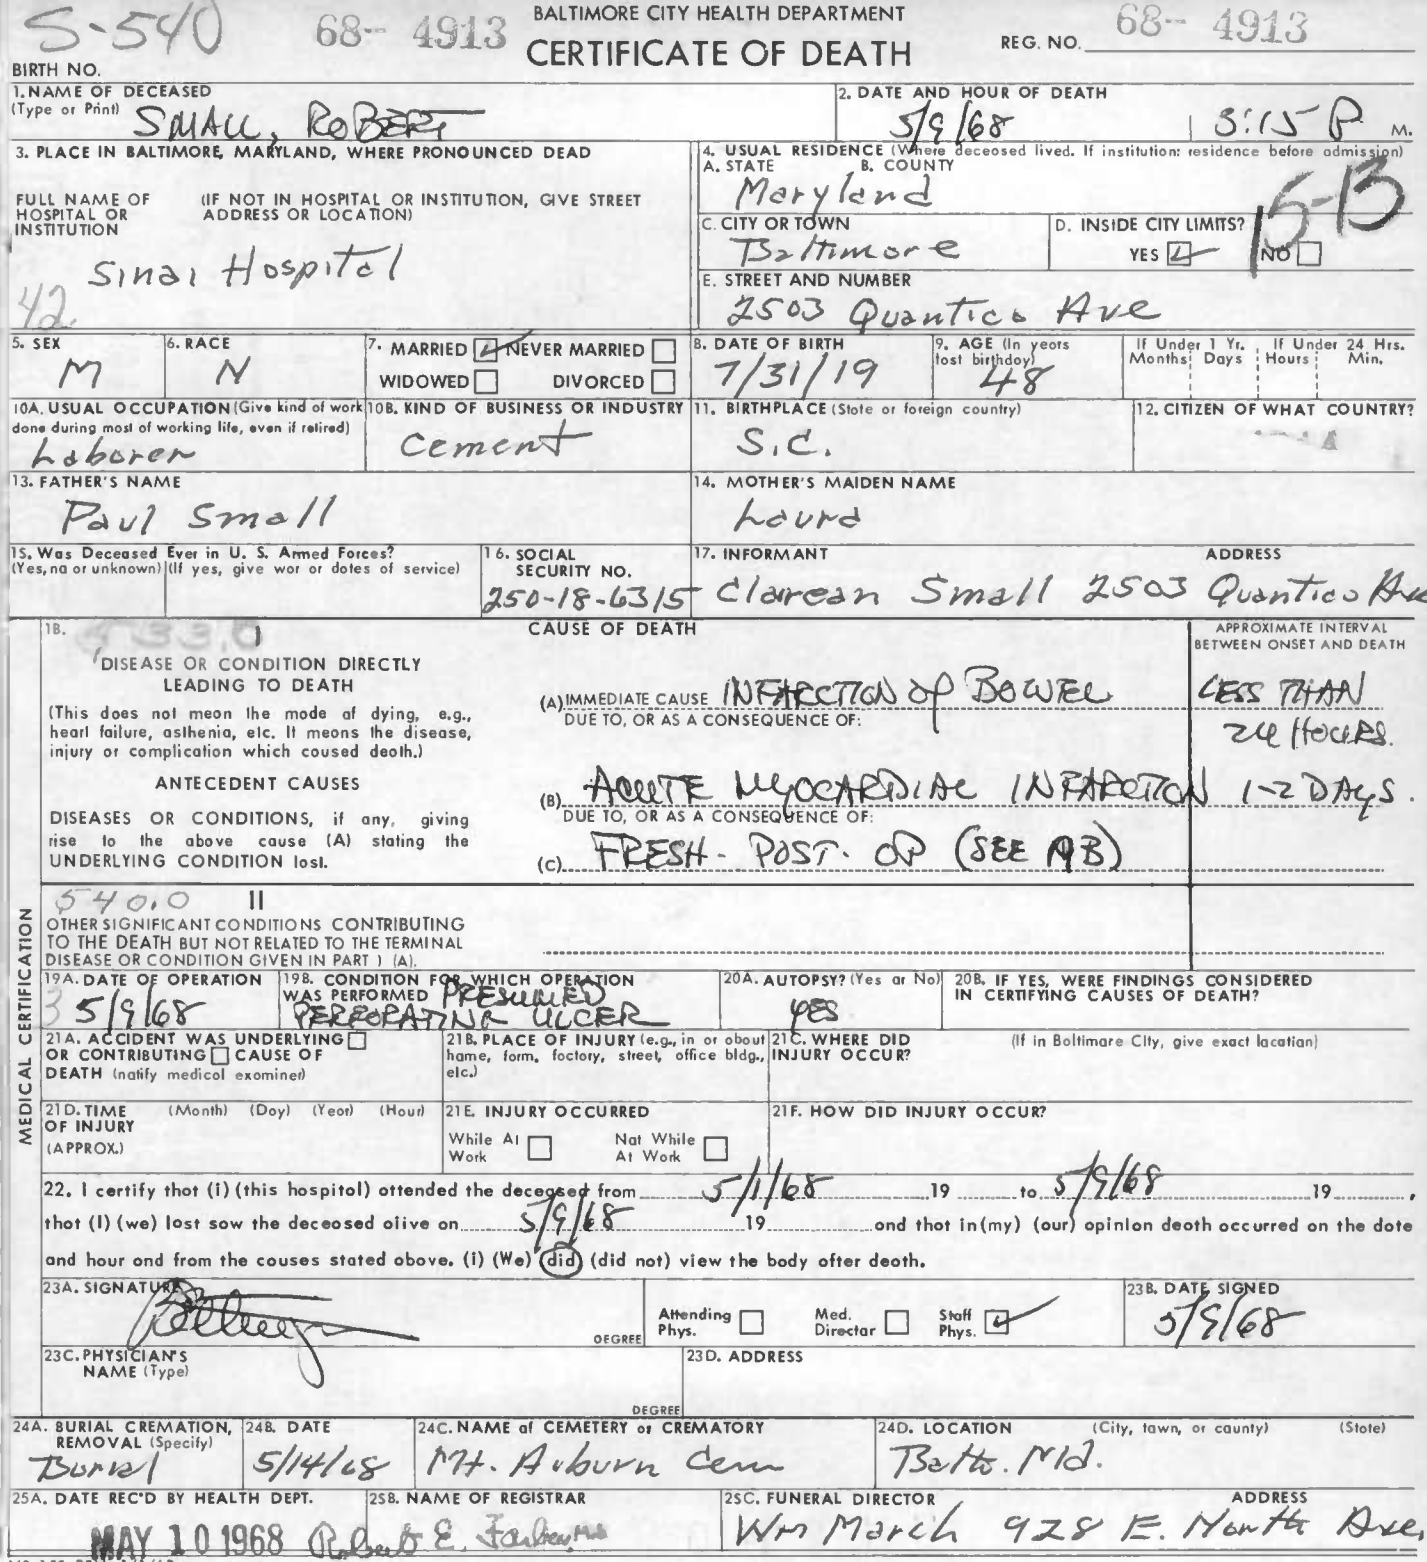 S-540 68-4913 BALTIMORE CITY HEALTH DEPARTMENT 68-4913
CERTIFICATE OF DEATH REG. NO.
BIRTH NO.
1. NAME OF DECEASED
(Type or Print) SMALL, ROBERT
2. DATE AND HOUR OF DEATH
5/9/68 3:15 P M.
3. PLACE IN BALTIMORE, MARYLAND, WHERE PRONOUNCED DEAD
FULL NAME OF HOSPITAL OR INSTITUTION
(IF NOT IN HOSPITAL OR INSTITUTION, GIVE STREET ADDRESS OR LOCATION)
Sinai Hospital
42
4. USUAL RESIDENCE (Where deceased lived. If institution: residence before admission)
A. STATE B. COUNTY
Maryland
15-13
C. CITY OR TOWN
Baltimore
D. INSIDE CITY LIMITS?
YES NO
E. STREET AND NUMBER
2503 Quantico Ave
5. SEX
M
6. RACE
N
7. MARRIED NEVER MARRIED
WIDOWED DIVORCED
8. DATE OF BIRTH
7/31/19
9. AGE (In years last birthday)
48
If Under 1 Yr. If Under 24 Hrs.
Months Days Hours Min.
10A. USUAL OCCUPATION (Give kind of work done during most of working life, even if retired)
Laborer
10B. KIND OF BUSINESS OR INDUSTRY
Cement
11. BIRTHPLACE (State or foreign country)
S.C.
12. CITIZEN OF WHAT COUNTRY?
13. FATHER'S NAME
Paul Small
14. MOTHER'S MAIDEN NAME
Laura
15. Was Deceased Ever in U. S. Armed Forces?
(Yes, no or unknown) (If yes, give war or dates of service)
16. SOCIAL SECURITY NO.
250-18-6315
17. INFORMANT ADDRESS
Clarean Small 2503 Quantico Ave
18. I
CAUSE OF DEATH
APPROXIMATE INTERVAL
BETWEEN ONSET AND DEATH
DISEASE OR CONDITION DIRECTLY
LEADING TO DEATH
(This does not mean the mode of dying, e.g.,
heart failure, asthenia, etc. It means the disease,
injury or complication which caused death.)
(A) IMMEDIATE CAUSE INFARCTION OF BOWEL LESS THAN
24 HOURS.
DUE TO, OR AS A CONSEQUENCE OF:
ANTECEDENT CAUSES
DISEASES OR CONDITIONS, if any, giving
rise to the above cause (A) stating the
UNDERLYING CONDITION last.
(B) ACUTE MYOCARDIAL INFARCTION 1-2 DAYS.
DUE TO, OR AS A CONSEQUENCE OF:
(C) FRESH-POST-OP (SEE 19B)
MEDICAL CERTIFICATION
540.0 II
OTHER SIGNIFICANT CONDITIONS CONTRIBUTING
TO THE DEATH BUT NOT RELATED TO THE TERMINAL
DISEASE OR CONDITION GIVEN IN PART 1 (A).
19A. DATE OF OPERATION
3 5/9/68
19B. CONDITION FOR WHICH OPERATION
WAS PERFORMED PRESUMED
PERFORATING ULCER
20A. AUTOPSY? (Yes or No)
YES
20B. IF YES, WERE FINDINGS CONSIDERED
IN CERTIFYING CAUSES OF DEATH?
21A. ACCIDENT WAS UNDERLYING
OR CONTRIBUTING CAUSE OF
DEATH (notify medical examiner)
21B. PLACE OF INJURY (e.g., in or about
home, farm, factory, street, office bldg.,
etc.)
21C. WHERE DID (If in Baltimore City, give exact location)
INJURY OCCUR?
21D. TIME (Month) (Day) (Year) (Hour)
OF INJURY
(APPROX.)
21E. INJURY OCCURRED
While At Work Not While At Work
21F. HOW DID INJURY OCCUR?
22. I certify that (I) (this hospital) attended the deceased from 5/1/68 19 to 5/9/68 19 ,
that (I) (we) last saw the deceased alive on 5/9/68 19 and that in (my) (our) opinion death occurred on the date
and hour and from the causes stated above. (I) (We) (did) (did not) view the body after death.
23A. SIGNATURE
DEGREE
Attending Phys. Med. Director Staff Phys.
23B. DATE SIGNED
5/9/68
23C. PHYSICIAN'S
NAME (Type)
DEGREE
23D. ADDRESS
24A. BURIAL CREMATION,
REMOVAL (Specify)
Burial
24B. DATE
5/14/68
24C. NAME of CEMETERY or CREMATORY
Mt. Auburn Cem
24D. LOCATION (City, town, or county) (State)
Balto. Md.
25A. DATE REC'D BY HEALTH DEPT.
MAY 10 1968
25B. NAME OF REGISTRAR
Robert E. Farber, M.D.
25C. FUNERAL DIRECTOR ADDRESS
Wm March 928 E. North Ave.